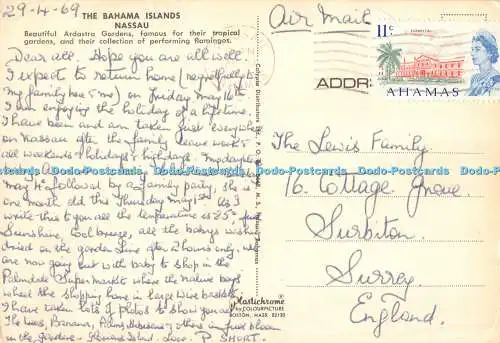 29-4-69
THE BAHAMA ISLANDS
NASSAU
Beautiful Ardastra Gardens, famous for their tropical
gardens, and their collection of performing flamingos.
Dear all. Hope you are all well.
I expect to return home (regretfully to
my family here & me) on Friday May 16th
I am enjoying the holiday of a lifetime.
I have been and am taken just everywhere
on Nassau after the family leave work &
all weekends & holidays & highdays.
May 4th followed by a family party, she is
one month old this Thursday May 1st As I
write this to you all the temperature is 85° just
Sunshine, Cool breeze, all the babys washing
dried on the garden line after 2 hours only, we
are now going out with baby to shop in the
Palmdale Super Market where the native boys
wheel the shopping home in large wire baskets
I have taken lots of photos to show you all
The trees, Bananas, Palms, & others in full bloom
in the gardens. Love P. SHORT.
Calypso Distributors Ltd. P. O.
Mastichrome
by COLOURPICTURE
BOSTON, MASS. 02130
Air Mail
ADDR
11c
BAHAMAS
The Lewis Family,
16. Cottage Grove
Surbiton
Surrey.
England.
www.Dodo-Postcards.com